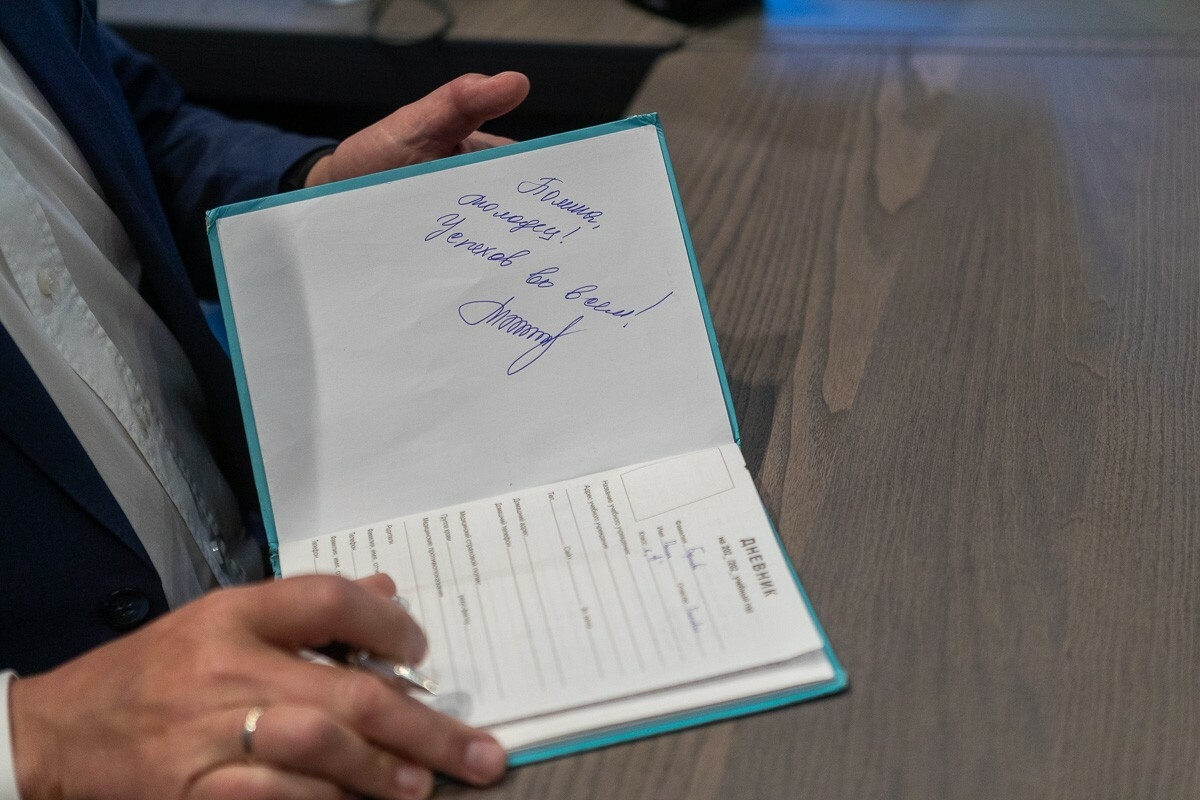 Полина,
молодец!
Успехов во всем!
ДНЕВНИК
на 20__/20__ учебный год
Фамилия
Имя Отчество
Класс
Название учебного учреждения
Адрес учебного учреждения
Тел. Сайт Эл. почта
Домашний адрес
Домашний телефон
Медицинский страховой полис
Группа крови резус-фактор
Медицинские противопоказания
Родители
Фамилия, имя, от
Телефон
Фамилия, имя, от
Телефон